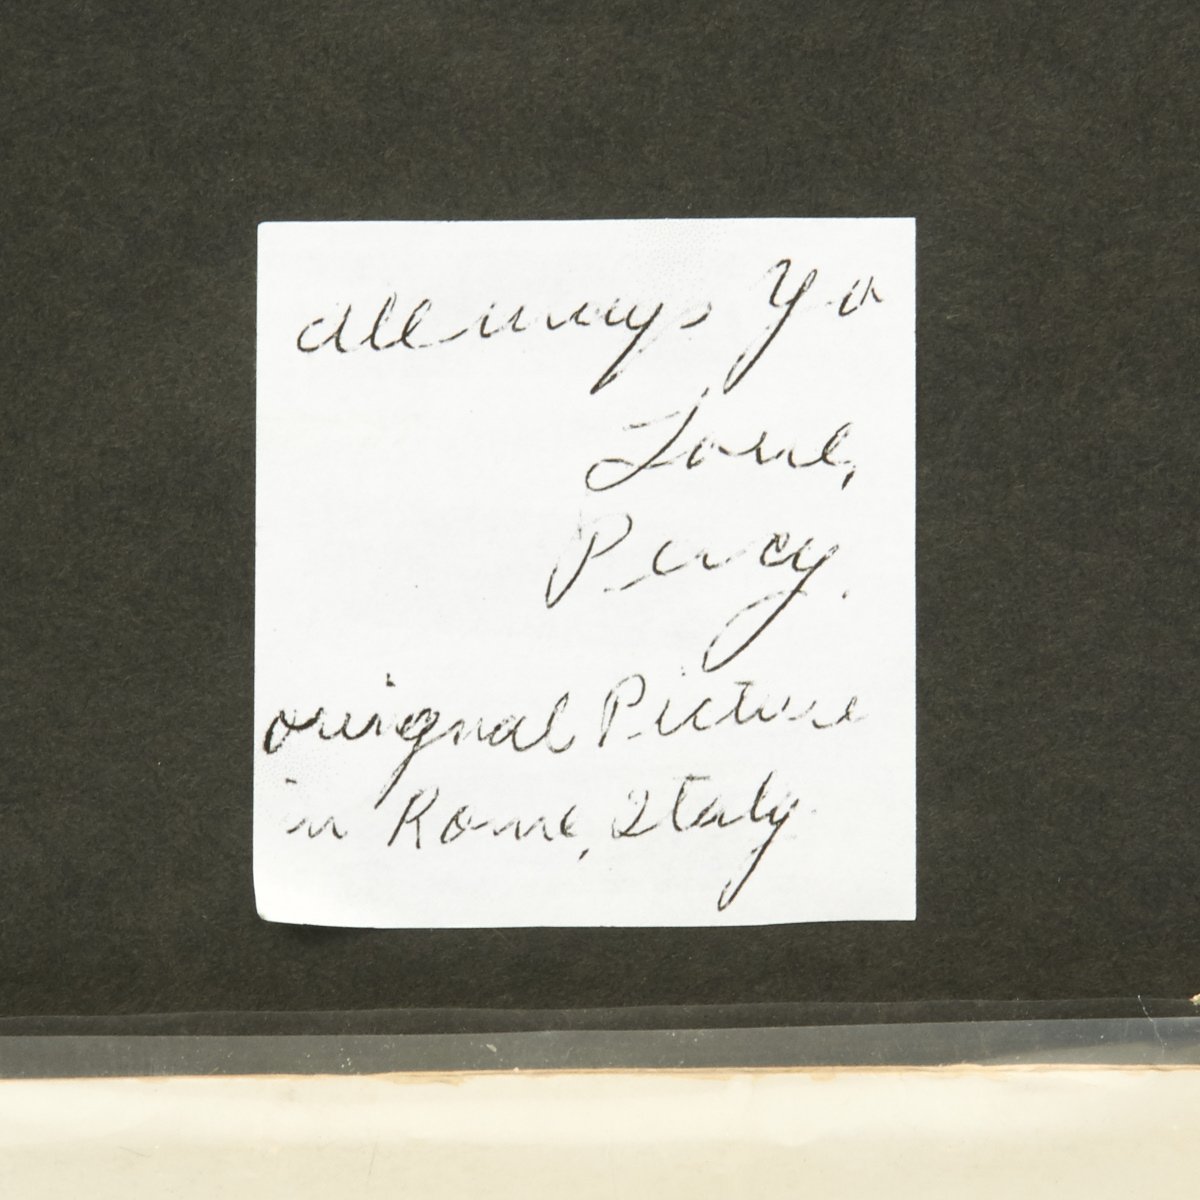 Allways Yo
Love,
Percy.
original Picture
in Rome, Italy.